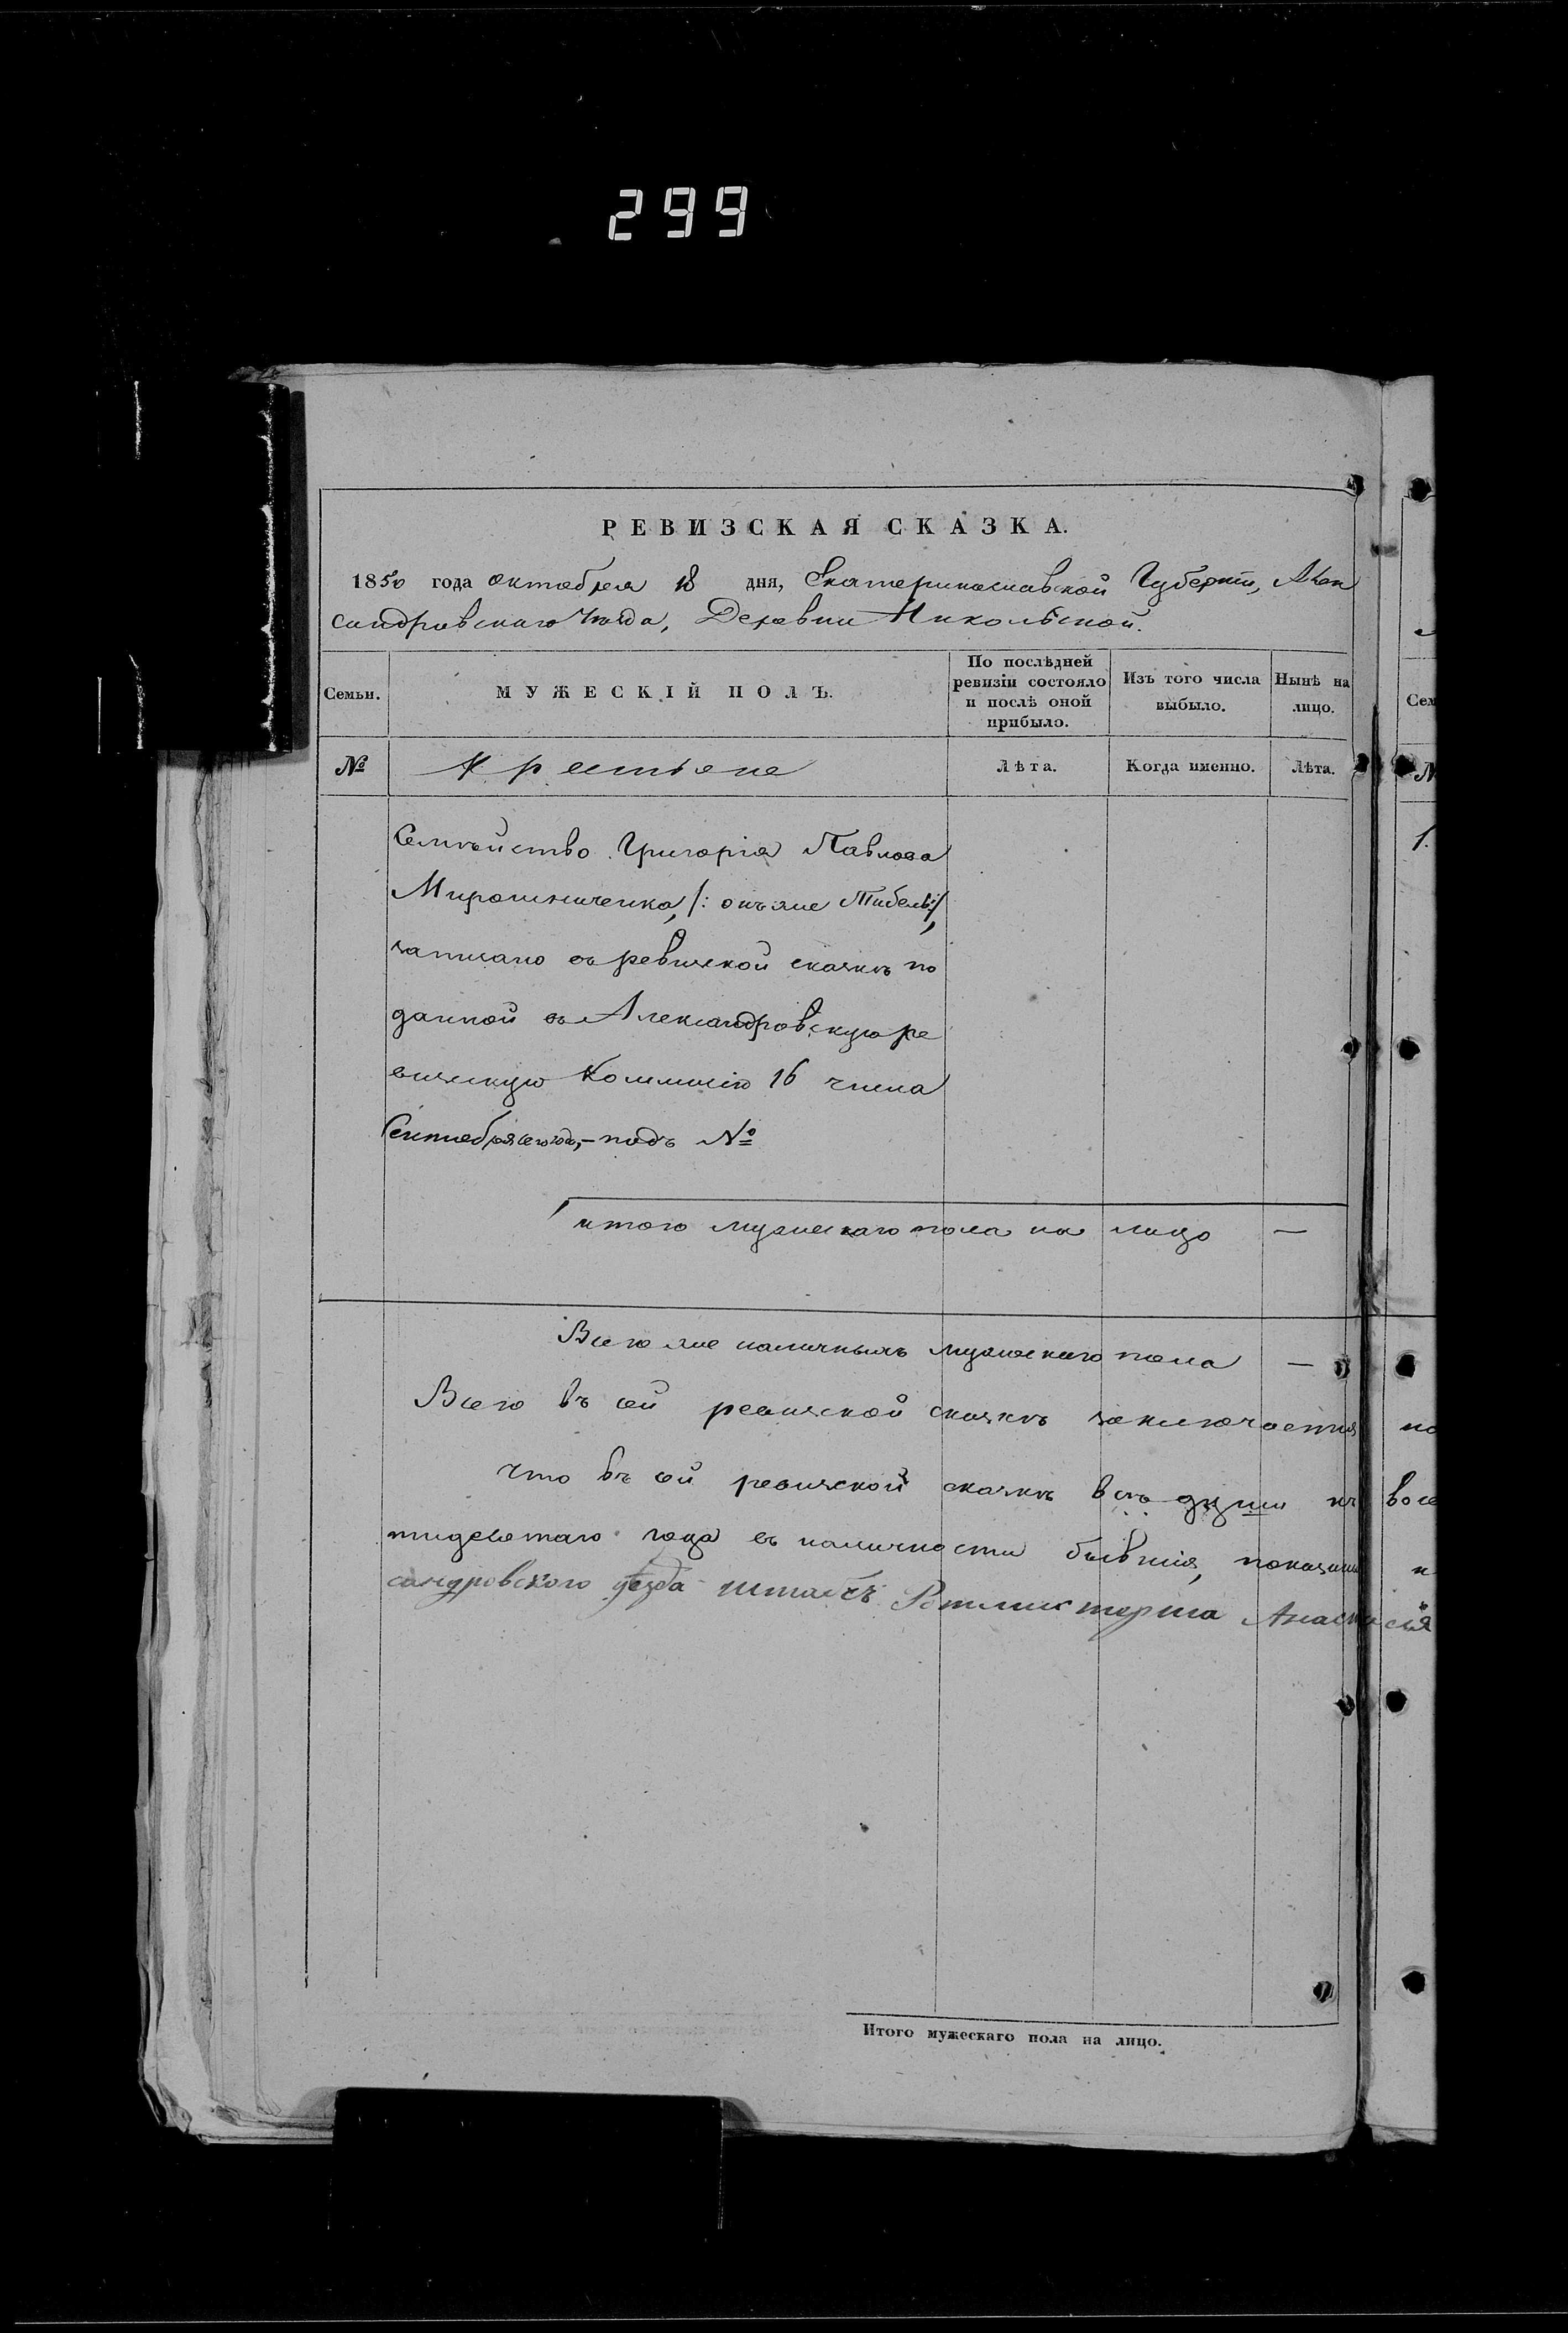 299
РЕВИЗСКАЯ СКАЗКА.
1850 года октября 18 дня, Екатеринославской Губерніи, Алек
сандровскаго Уѣзда, Деревни Никольской.
Семьи.
МУЖЕСКІЙ ПОЛЪ.
По послѣдней ревизіи состояло и послѣ оной прибыло.
Изъ того числа выбыло.
Нынѣ на лицо.
Сем
№
Крестьяне
Лѣта.
Когда именно.
Лѣта.
№
1.
Семѣйство Григорія Павлова
Мирошниченка, /: онъ же :/,
записано въ ревизской сказкѣ по
данной въ Александровскую ре
визскую Коммисію 16 числа
Сентября сего года, – подъ №
итого мужескаго пола на лицо —
Всего же наличныхъ мужескаго пола —
Всего въ сей ревизской сказкѣ заключается на
Что въ сей ревизской сказкѣ всѣ души къ восе
тидесятаго года въ наличности бывшія, показаны и
сандровского уѣзда штабсъ Ротмистрша Анастасія
Итого мужескаго пола на лицо.